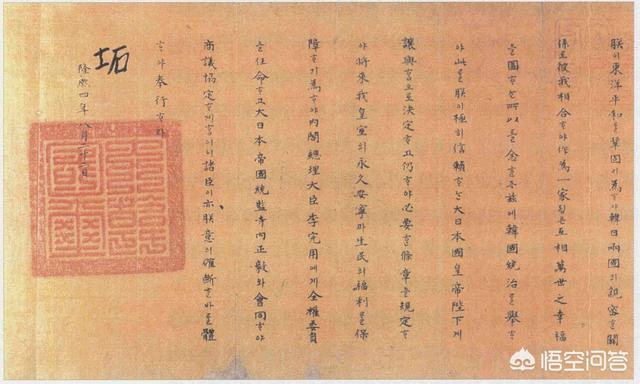 朕이東洋平和를鞏固히爲ᄒᆞ야韓日兩國의親密ᄒᆞᆫ關
係로彼我相合ᄒᆞ야作爲一家ᄒᆞᆷ은互相萬世之幸福
을圖ᄒᆞᄂᆞᆫ所以를念ᄒᆞᆫ則玆에韓國統治를擧ᄒᆞ
야此를朕이極히信賴ᄒᆞᄂᆞᆫ大日本國皇帝陛下게
讓與ᄒᆞ기로決定ᄒᆞ고仍ᄒᆞ야必要ᄒᆞᆫ條章을規定ᄒᆞ
야將來我皇室의永久安寧과生民의福利를保
障ᄒᆞ기爲ᄒᆞ야內閣總理大臣李完用에게全權委員
을任命ᄒᆞ고大日本帝國統監寺內正毅와會同ᄒᆞ야
商議協定케ᄒᆞ노니諸臣이亦朕意의確斷ᄒᆞᆫ바를體
ᄒᆞ야奉行ᄒᆞ라
隆熙四年八月二十二日
坧
悟空问答